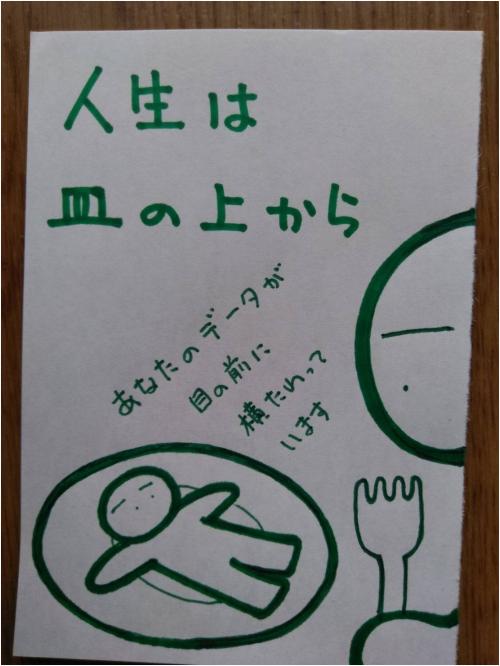 人生は
皿の上から
あなたのデータが
目の前に
横たわって
います